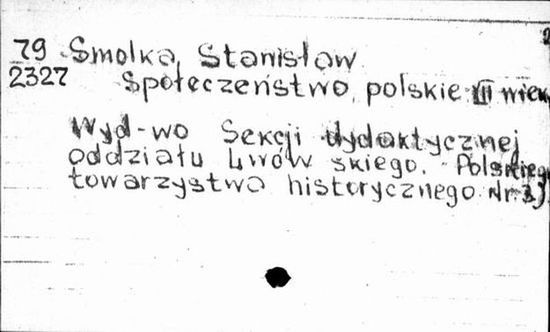 79 Smolka, Stanisław
2327 Społeczeństwo polskie XIII wiek
Wyd-wo Sekcji dydaktycznej
oddziału Lwowskiego. Polskiego
towarzystwa historycznego. Nr.3).